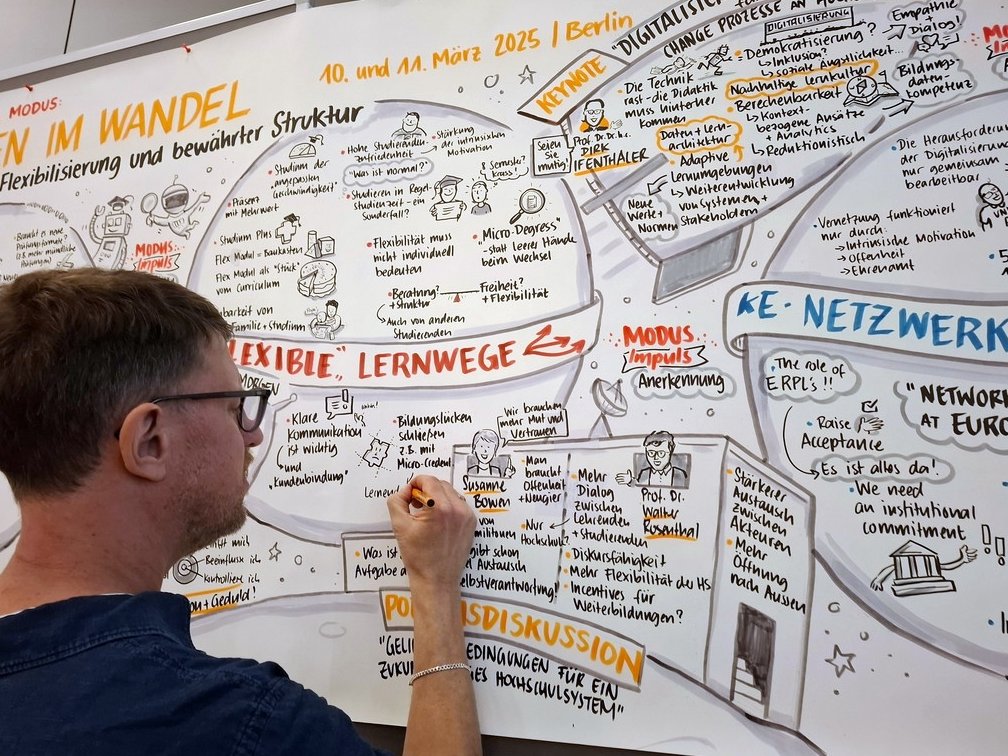 MODUS:
EN IM WANDEL
Flexibilisierung und bewährter Struktur
10. und 11. März 2025 | Berlin
KEYNOTE
"DIGITALISIER
CHANGE PROZESSE AN
DIGITALISIERUNG
Seien
Sie
mutig!
Prof. Dr. Dr. h.c.
DIRK
IFENTHALER
• Die Technik
rast - die Didaktik
muss hinterher
kommen
Daten + Lern-
architektur
• Adaptive
Lernumgebungen
↳ Weiterentwicklung
von Systemen +
Stakeholdern
Neue
Werte +
Normen
• Demokratisierung?
↳ Inklusion?
↳ soziale Ängstlichkeit...
Nachhaltige Lernkultur
• Berechenbarkeit
↳ Kontext-
bezogene Ansätze
+ Analytics
↳ Reduktionistisch
Empathie
+
Dialog!
Bildungs-
daten-
kompetenz
• Die Herausforder
der Digitalisierun
nur gemeinsam
bearbeitbar
• Vernetzung funktioniert
nur durch:
→ Intrinsische Motivation
→ Offenheit
→ Ehrenamt
• Braucht es neue
Prüfungsformate?
MODUS
Impuls
• Studium der
"angepassten
Geschwindigkeit"
• Präsenz
mit Mehrwert
• Studium Plus
Flex Modul = Baukasten
Flex Modul als "Stück"
vom Curriculum
barkeit von
Familie + Studium
• Hohe Studierenden-
zufriedenheit
"Was ist normal?"
• Studieren in Regel-
studienzeit - ein
Sonderfall?
• Stärkung
der intrinsischen
Motivation
8 Semester?
krass!
• Flexibilität muss
nicht individuell
bedeuten
• "Micro-Degress"
statt leere Hände
beim Wechsel
• Beratung?
+ Struktur
Freiheit?
+ Flexibilität
↳ Auch von anderen
Studierenden
LEXIBLE", LERNWEGE
MORGEN
• Klare
Kommunikation
ist wichtig
↳ und
"Kundenbindung"
• Bildungslücken
schließen
z.B. mit
Micro-Credent
MODUS
Impuls
Anerkennung
Wir brauchen
mehr Mut und
Vertrauen
Susanne
Bowen
• Man
braucht
Offenheit
+ Neugier
• Mehr
Dialog
zwischen
Lehrenden
+ studierenden
Prof. Dr.
Walter
Rosenthal
• Diskursfähigkeit
• Mehr Flexibilität der HS
• Incentives für
Weiterbildungen?
• Stärkerer
Austausch
zwischen
Akteuren
• Mehr
Öffnung
nach Aussen
• Was ist
Aufgabe d
gibt schon
Austausch
elbstverantwortung!
Beeinflusse ich
Kontrolliere ich
on + Geduld!
PO
ISDISKUSSION
"GELI
BEDINGUNGEN FÜR EIN
ZUKU
ES HOCHSCHULSYSTEM"
KE • NETZWERK
• The role of
ERPL's!!
• Raise
Acceptance
Es ist alles da!
• We need
an institutional
commitment
"NETWORK
AT EURO